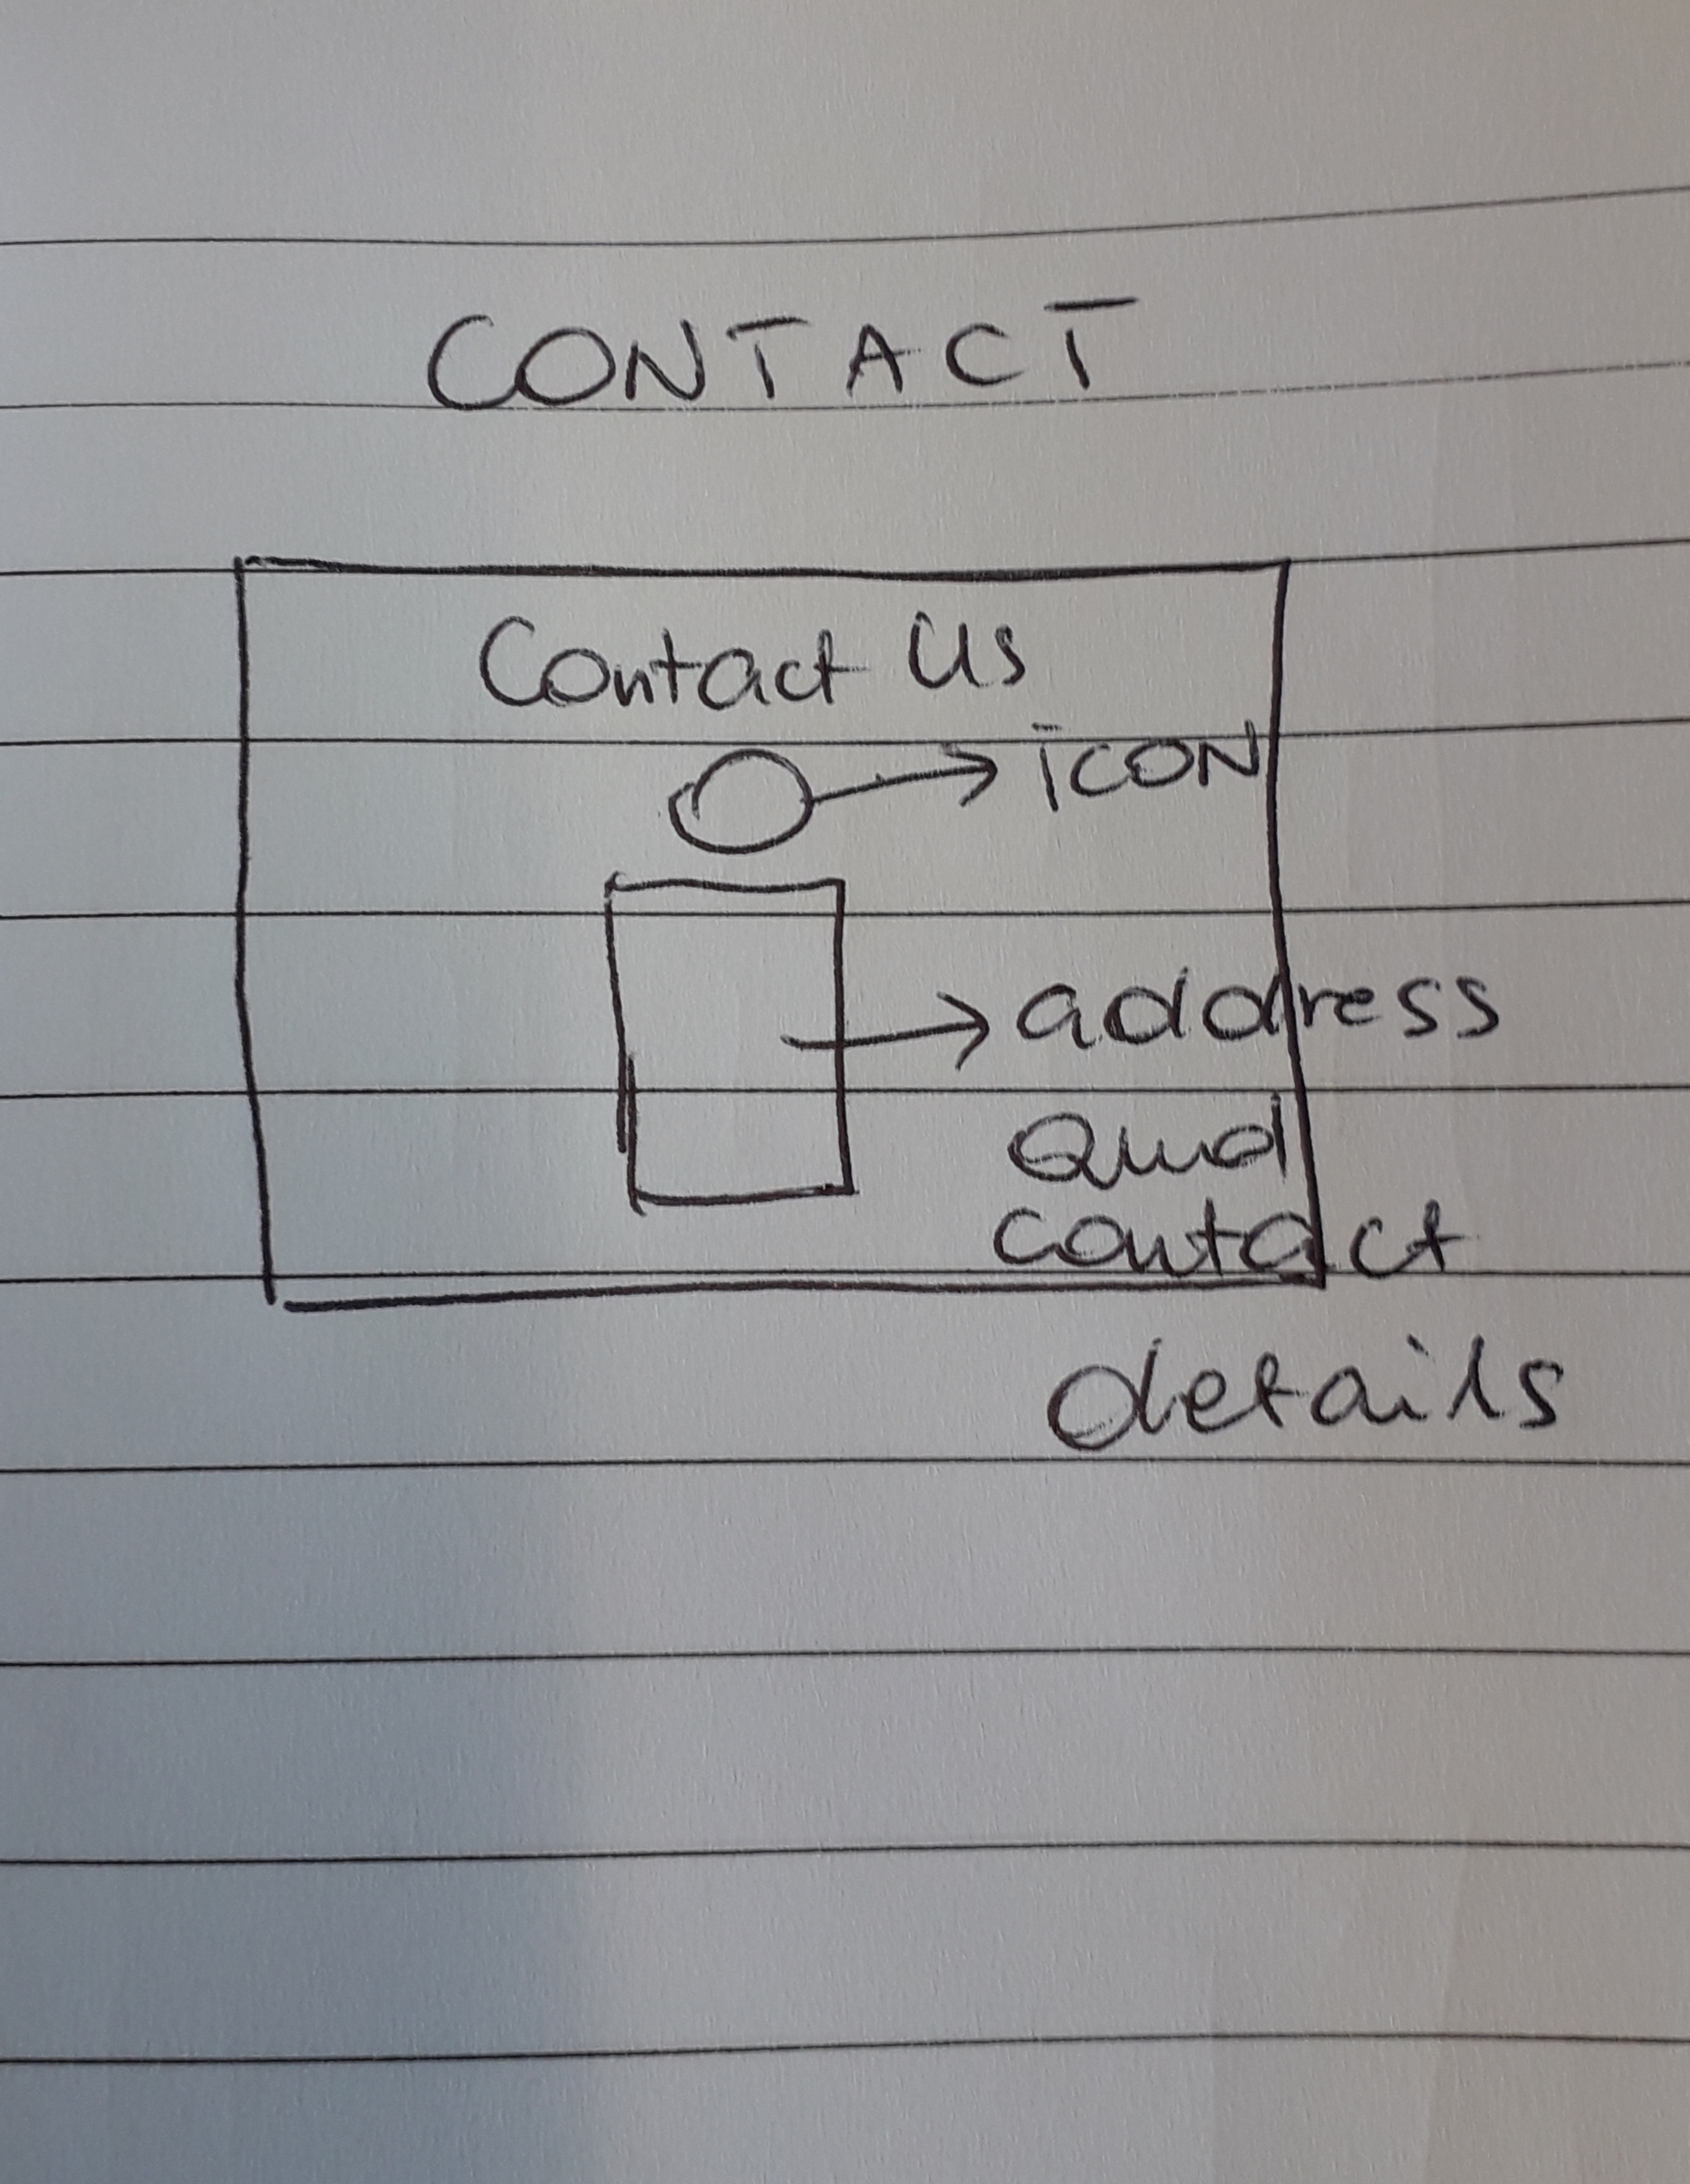 CONTACT
Contact Us
iCON
address
and
contact
details